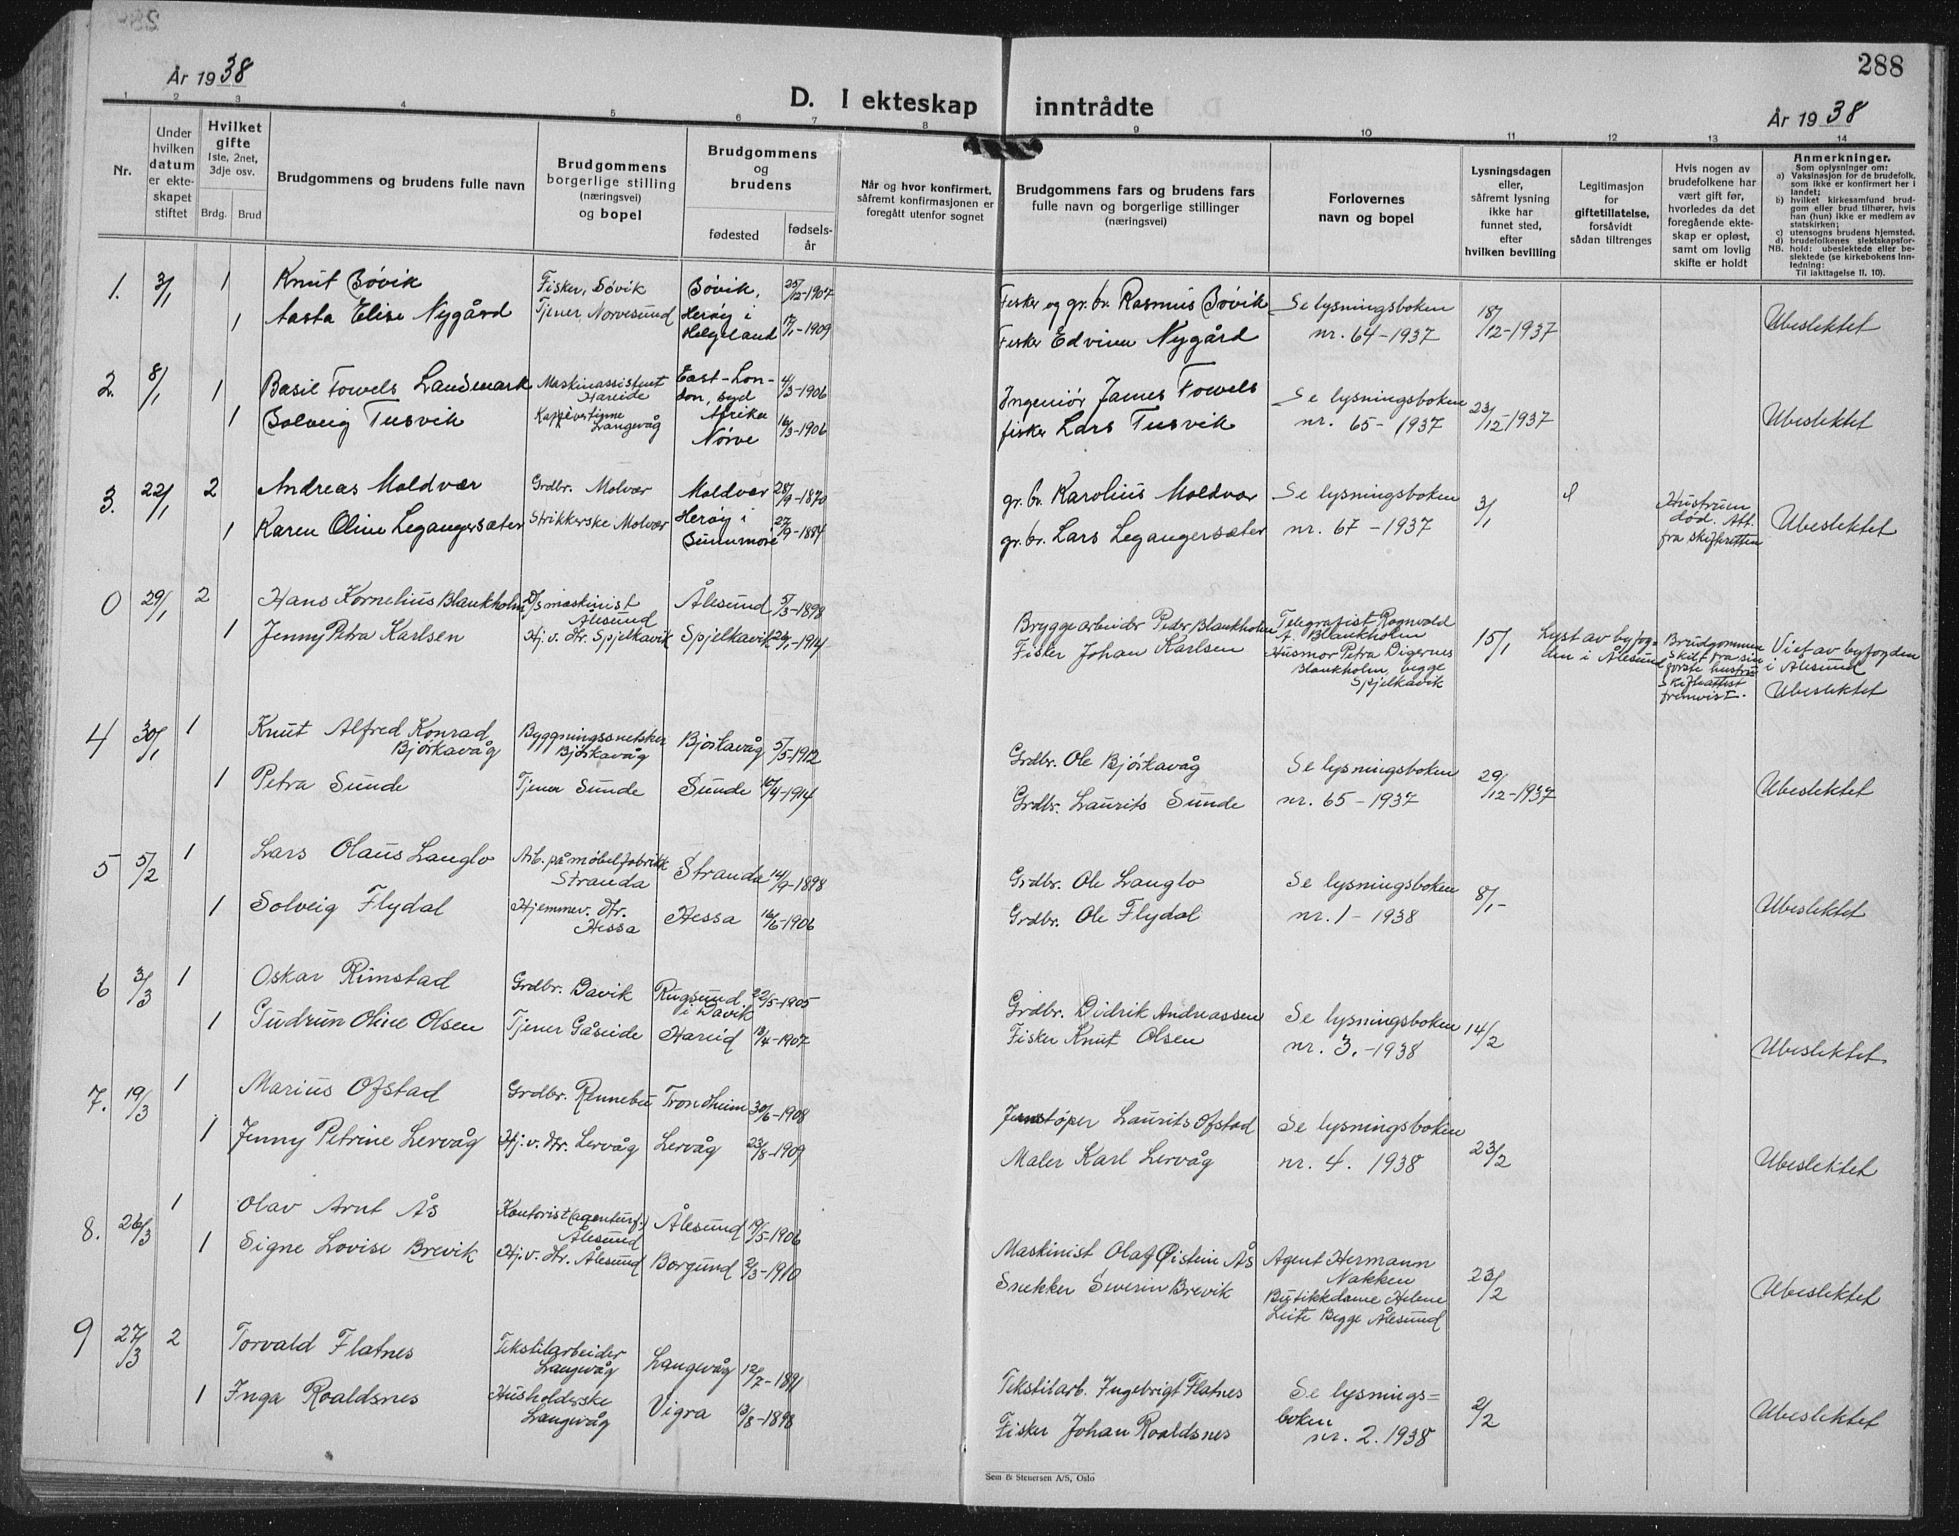 288
År 1938
D. I ekteskap inntrådte
År 1938
1 2 3 4 5 6 7 8 9 10 11 12 13 14
Nr.
Under hvilken datum er ekteskapet stiftet
Hvilket gifte
1ste, 2net, 3dje osv.
Brdg. Brud
Brudgommens og brudens fulle navn
Brudgommens borgerlige stilling (næringsvei) og bopel
Brudgommens og brudens
fødested
fødselsår
Når og hvor konfirmert, såfremt konfirmasjonen er foregått utenfor sognet
Brudgommens fars og brudens fars fulle navn og borgerlige stillinger (næringsvei)
Forlovernes navn og bopel
Lysningsdagen eller, såfremt lysning ikke har funnet sted, efter hvilken bevilling
Legitimasjon for giftetillatelse, forsåvidt sådan tiltrenges
Hvis nogen av brudefolkene har vært gift før, hvorledes da det foregående ekteskap er opløst, samt om lovlig skifte er holdt
Anmerkninger.
Som oplysninger om:
a) Vaksinasjon for de brudefolk, som ikke er konfirmert her i landet;
b) hvilket kirkesamfund brudgom eller brud tilhører, hvis han (hun) ikke er medlem av statskirken;
c) utensogns brudens hjemsted.
d) brudefolkenes slektskapsforhold: ubeslektede eller beslektede (se kirkebokens Innledning:
NB.
Til iakttagelse II. 10).
1. 3/1 1 Knut Bövik Fisker, Bövik Bövik, 25/12-1907 Fisker og gr.br. Rasmus Bövik Se lysningsboken 18/12-1937 Ubeslektet
1 Aasta Elise Nygård Tjener Norvesund Herøy i Helgeland 17/1-1909 Fisker Edvin Nygård nr. 64-1937
2. 8/1 1 Basil Fowels Landmark Maskinassistent Hareide East-London, syd Afrika 4/3-1906 Ingeniör James Fowels Se lysningsboken 23/12-1937 Ubeslektet
1 Solveig Tusvik Langevåg Nörve 16/3-1906 fisker Lars Tusvik nr. 65-1937
3. 22/1 2 Andreas Moldvær Grdbr. Molvær Moldvær 28/9-1870 gr.br. Karolius Moldvær Se lysningsboken 3/1 Hustruen död. Att. fra skifteretten Ubeslektet
1 Karen Oline Legangersæter Strikkerske Molvær Herøy i Sunnmøre 27/9-1887 gr.br. Lars Legangersæter nr. 67-1937
0 29/1 2 Hans Kornelius Blankholm D/s maskinist Ålesund Ålesund 5/3-1898 Bryggearbeider Peder Blankholm Telegrafist Ragnvald A. Blankholm 15/1 Lyst av byfogden i Ålesund Brudgommen skilt fra sin første hustru Skifteattest fremvist. Viet av byfogden i Ålesund
1 Jenny Petra Karlsen Hj.v. dtr. Spjelkavik Spjelkavik 1914 Fisker Johan Karlsen Husmor Petra Digernes Blankholm, begge Spjelkavik Ubeslektet
4 30/1 1 Knut Alfred Konrad Bjørkavåg Byggningssnekker Bjørkavåg Bjørkavåg 5/5-1912 Grdbr. Ole Bjørkavåg Se lysningsboken 29/12-1937 Ubeslektet
1 Petra Sunde Tjener Sunde Sunde 10/4-1914 Grdbr. Laurits Sunde nr. 65-1937
5 5/2 1 Lars Olaus Langlo Arb. på møbelfabrikk Stranda Stranda 14/9-1898 Grdbr. Ole Langlo Se lysningsboken 8/1- Ubeslektet
1 Solveig Flydal Hjemmev. dtr. Hessa Hessa 16/6-1906 Grdbr. Ole Flydal nr. 1-1938
6 3/3 1 Oskar Rimstad Grdbr. Davik Rugsund i Davik 22/5-1905 Grdbr. Didrik Andreassen Se lysningsboken 14/2 Ubeslektet
1 Gudrun Oline Olsen Tjener Gåseide Hareid 13/4-1907 Fisker Knut Olsen nr. 3.-1938
7. 19/3 1 Marius Ofstad Grdbr. Rennebu Trondheim 30/6-1908 Jernstøper Laurits Ofstad Se lysningsboken 23/2 Ubeslektet
1 Jenny Petrine Lervåg Hj.v. dtr. Lervåg Lervåg 23/8-1909 Maler Karl Lervåg nr. 4. 1938
8. 26/3 1 Olav Arnt Ås Kontorist (agenturf.) Ålesund Ålesund 19/5-1906 Maskinist Olaf Øistein Ås Agent Hermann Nakken 23/2 Ubeslektet
1 Signe Lovise Brevik Hj.v. dtr. Ålesund Borgund 2/3-1910 Snekker Severin Brevik Butikkdame Helene Leite Begge Ålesund
9 27/3 2 Torvald Flatnes Tekstilarbeider Langevåg Langevåg 12/7-1891 Tekstilarb. Ingebrigt Flatnes Se lysningsboken 2/2 Ubeslektet
1 Inga Roaldsnes Husholderske Langevåg Vigra 13/8-1898 Fisker Johan Roaldsnes nr. 2. 1938
Sem & Stenersen A/S, Oslo